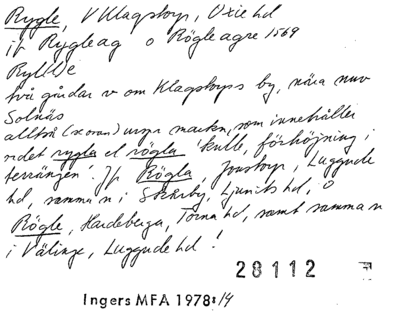 Rygle, V Klagstorp, Oxie hd
jfr Rygleag o Rögleagre 1569
två gårdar v om Klagstorps by, nära nuv
Solnäs
alltså (ovan) urspr markn, som innehåller
ordet rygla el rögla 'kulle, förhöjning i
terrängen'. Jfr Rögla, Jonstorp, Luggude
hd, samma n i Skårby, Ljunits hd, o
Rögle, Hardeberga, Torna hd, samt samma n
i Välinge, Luggude hd!
28112
Ingers MFA 1978:14